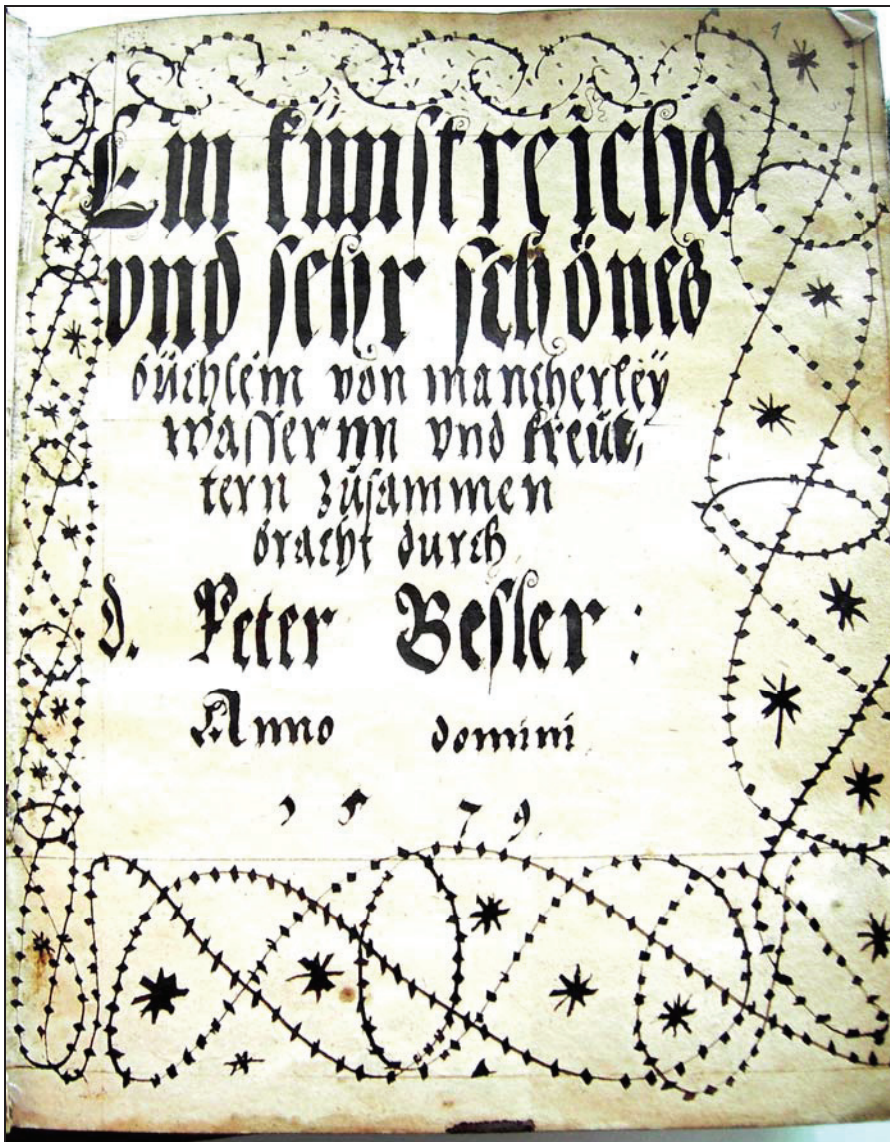 1
Ein künstreichs
vnd sehr schönes
büchlein von mancherleÿ
wassernn vnd kreüt,
tern züsammen
bracht durch
d. Peter Besler :
Anno domini
1579.